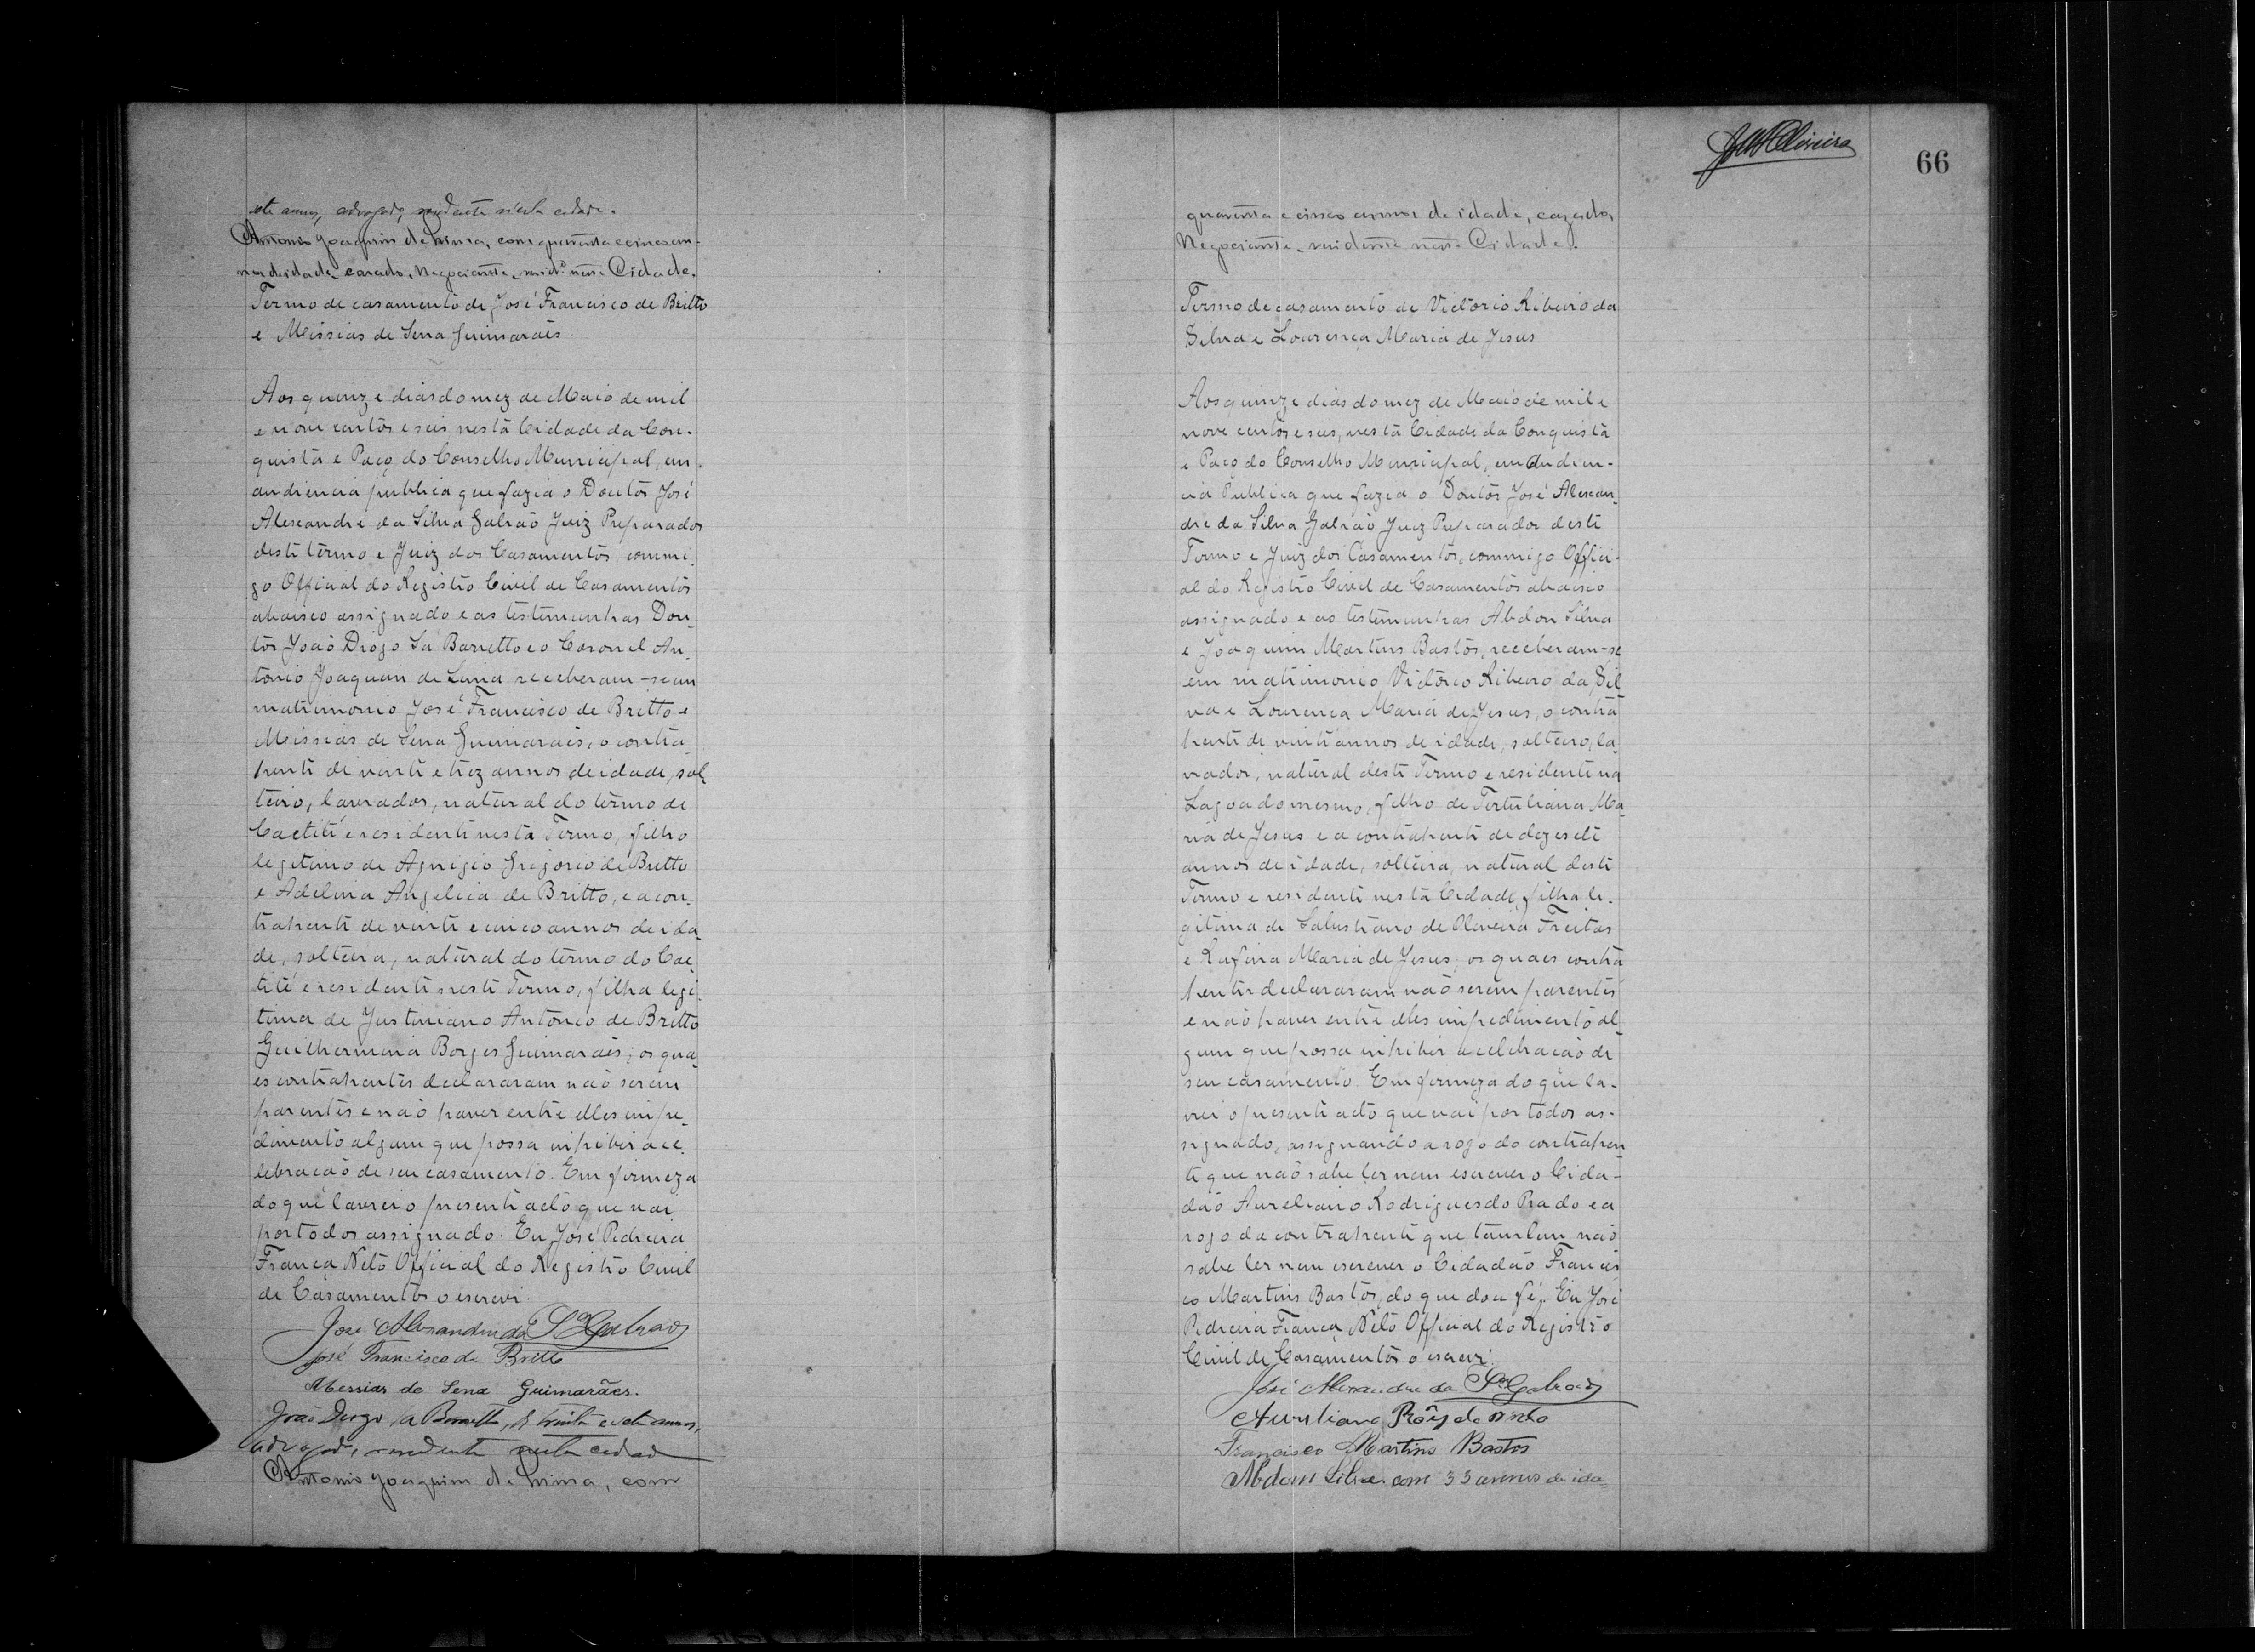 sete annos, advogado, residente n'esta cidade.
Antonio Joaquim de Lima, com quarenta e cinco an-
nos de idade casado, Negociante, resid.e nesta Cidade.
Termo de casamento de José Francisco de Britto
e Missias de Sena Guimarães
Aos quinze dias do mez de Maio de mil
e nove centos e seis nesta Cidade da Con-
quista e Paço do Conselho Municipal, em
audiencia publica que fazia o Doutor José
Alexandre da Silva Galvão Juiz Preparador
deste termo e Juiz dos Casamentos, commi-
go Official do Registro Civil de Casamentos
abaixo assignado e as testemunhas Dou-
tor João Diogo Sá Barretto e o Coronel An-
tonio Joaquim de Lima receberam-se em
matrimonio José Francisco de Britto e
Missias de Sena Guimarães, o contra-
hente de vinte e trez annos de idade, sol-
teiro, lavrador, natural do termo de
Caetité e residente nesta Termo, filho
legitimo de Agnigio Grigorio de Britto
e Adelina Angelica de Britto, e a con-
trahente de vinte e cinco annos de ida-
de, solteira, natural do termo do Cae-
tité e residente neste Termo, filha legi-
tima de Justiniano Antonio de Britto
Guilhermina Borges Guimarães; os qua-
es contrahentes declararam não serem
parentes e não haver entre elles impe-
dimento algum que possa inhibir a ce-
lebração de seu casamento. Em firmeza
do que lavrei o presente acto que vai
por todos assignado. Eu José Pedreira
França Neto Official do Registro Civil
de Casamentos o escrevi.
José Alexandre da S.a Galvão
José Francisco de Britto
Messias de Sena Guimarães.
João Diogo Sá Barretto, de trinta e sete annos,
advogado, residente nesta cidade
Antonio Joaquim de Lima, com
66
quarenta e cinco annos de idade, cazado,
Negociante, residente nesta Cidade.
Termo de casamento de Victorio Ribeiro da
Silva e Lourença Maria de Jesus
Aos quinze dias do mez de Maio de mil e
nove centos e seis, nesta Cidade da Conquista
e Paço do Conselho Municipal, em Audien-
cia Publica que fazia o Doutor José Alexan-
dre da Silva Galvão Juiz Preparador deste
Termo e Juiz dos Casamentos, commigo Offici-
al do Registro Civil de Casamentos abaixo
assignado e as testemunhas Abdon Silva
e Joaquim Martins Bastos, receberam-se
em matrimonio Victorio Ribeiro da Sil-
va e Lourença Maria de Jesus, o contra
hente de vinte annos de idade, solteiro, la-
vrador, natural deste Termo e residente na
Lagoa do mesmo, filho de Tertuliana Ma-
ria de Jesus e a contrahente de dezesete
annos de idade, solteira, natural deste
Termo e residente nesta Cidade, filha le-
gitima de Salustiano de Oliveira Freitas
e Rufina Maria de Jesus; os quaes contra
hentes declararam não serem parentes
e não haver entre elles impedimento al-
gum que possa inhibir a celebração de
seu casamento. Em firmeza do que la-
vrei o presente acto que vai por todos as-
signado, assignando a rogo do contrahen
te que não sabe ler nem escrever o Cida-
dão Aureliano Rodrigues do Prado e a
rogo da contrahente que tambem não
sabe ler nem escrever o Cidadão Francis
co Martins Bastos, do que dou fé. Eu José
Pedreira França Neto Official do Registro
Civil de Casamentos o escrevi.
José Alexandre da S.a Galvão
Aureliano Roiz do Prado
Francisco Martins Bastos
Abdon Silva com 33 annos de ida-